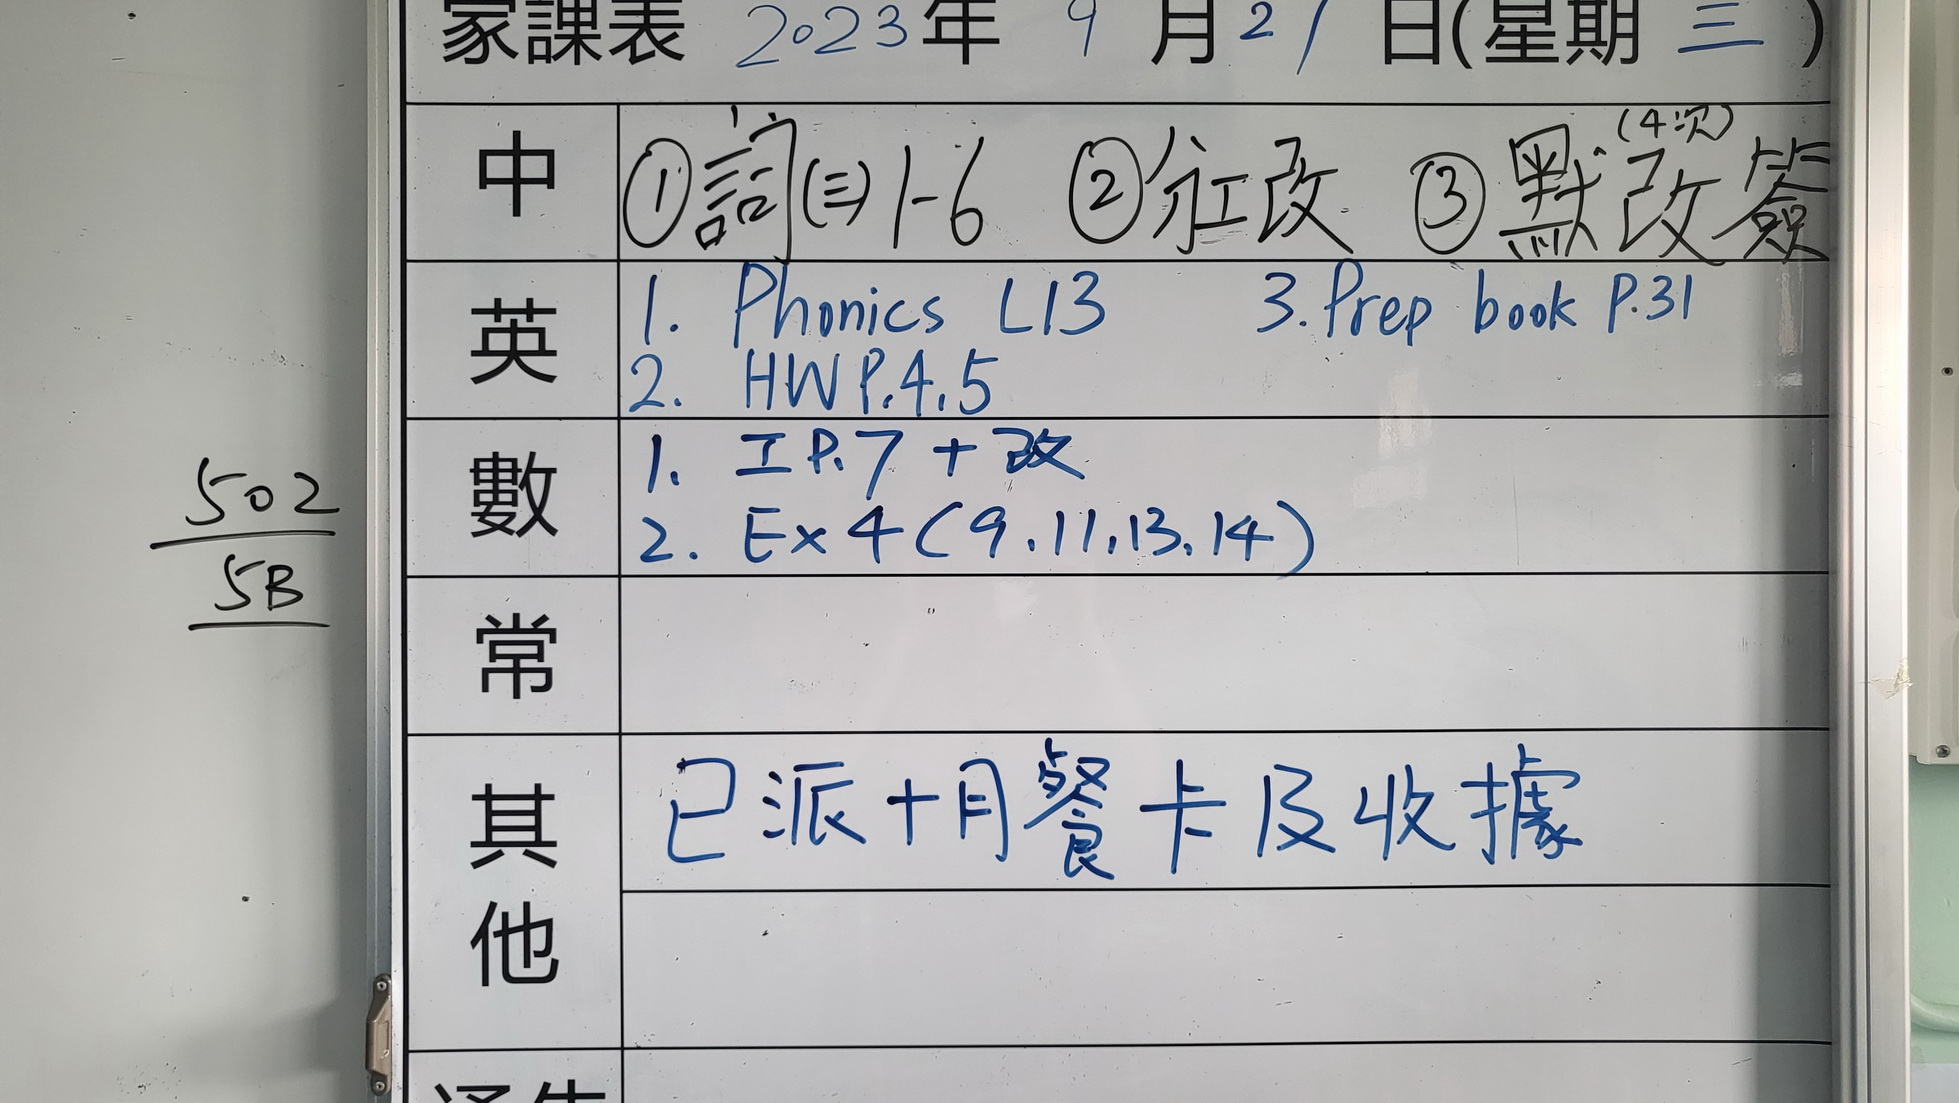 家課表 2023年 9月21日(星期三)
中 ①詞(三)1-6 ②訂改 ③默改簽
(4次)
英
1. Phonics L13 3. Prep book P.31
2. HW P.4.5
數
1. 工 P.7 + 改
2. Ex 4 (9.11.13.14)
502
5B
常
其他
已派十月餐卡及收據
通告